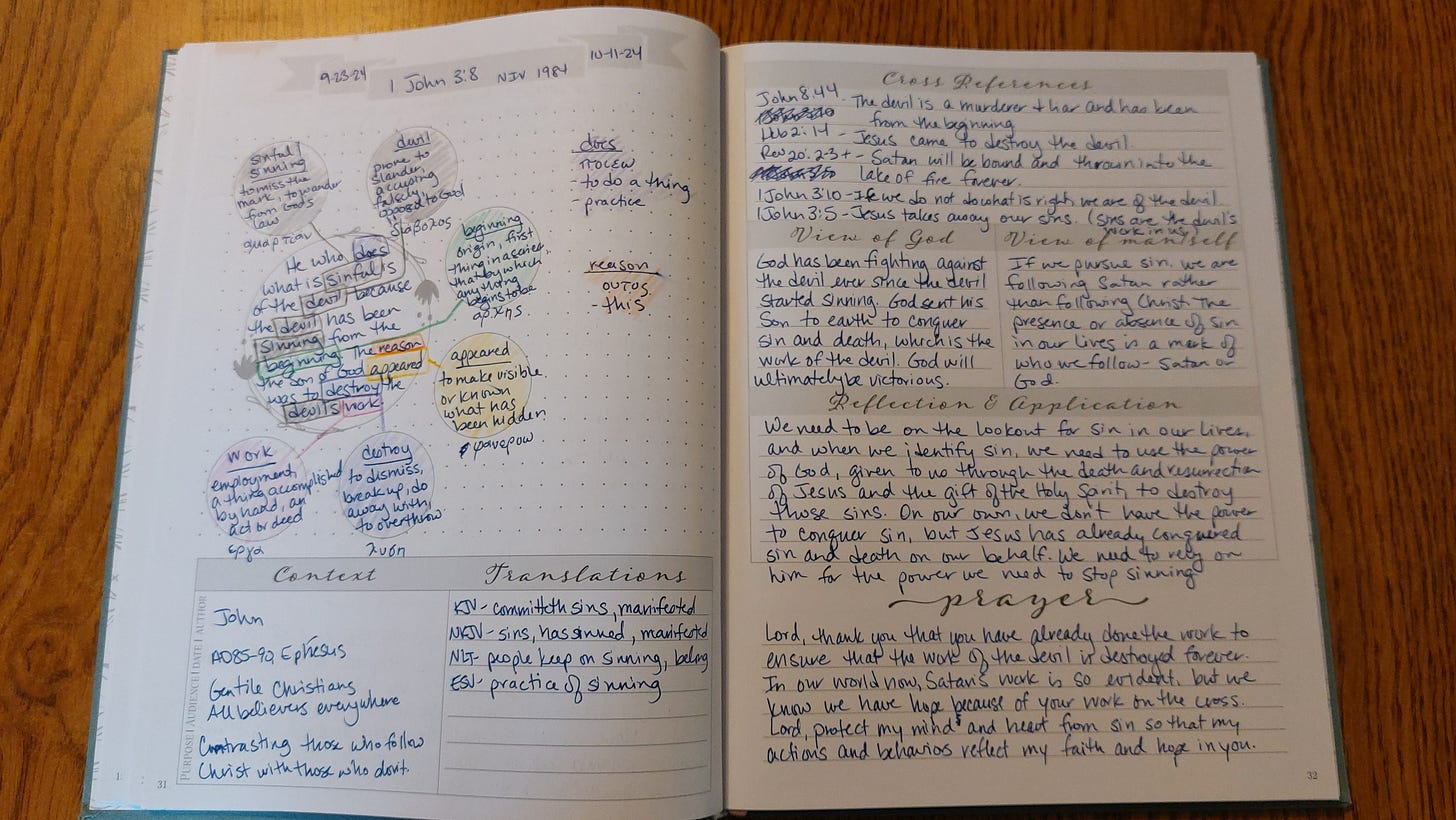 9-23-24
1 John 3:8 NIV 1984
10-11-24
sinful/
sinning
to miss the
mark, to wander
from God's
law
αμαρτιαν
devil
prone to
slander,
accusing
falsely,
opposed to God
διαβολος
does
ποιεω
- to do a thing
- practice
beginning
origin, first
thing in a series
that by which
anything
begins to be
αρχης
reason
ουτος
- this
He who does
what is sinful is
of the devil, because
the devil has been
sinning from the
beginning. The reason
the son of God appeared
was to destroy the
devil's work
appeared
to make visible
or known
what has
been hidden
φανεροω
work
employment,
a thing accomplished
by hand, an
act or deed
εργα
destroy
to dismiss,
break up, do
away with,
to overthrow
λυση
Context
PURPOSE | AUDIENCE | DATE | AUTHOR
John
AD85-90, Ephesus
Gentile Christians
All believers everywhere
Contrasting those who follow
Christ with those who don't.
Translations
KJV- committeth sins, manifested
NKJV- sins, has sinned, manifested
NLT- people keep on sinning, belong
ESV- practice of sinning
31
Cross References
John 8:44 - The devil is a murderer + liar and has been
from the beginning
Heb 2:14 - Jesus came to destroy the devil.
Rev 20:2-3+ - Satan will be bound and thrown into the
lake of fire forever.
1 John 3:10 - If we do not do what is right, we are of the devil
1 John 3:5 - Jesus takes away our sins. (sins are the devil's
work in us)
View of God
God has been fighting against
the devil ever since the devil
started sinning. God sent his
Son to earth to conquer
sin and death, which is the
work of the devil. God will
ultimately be victorious.
View of man/self
If we pursue sin, we are
following Satan rather
than following Christ. The
presence or absence of sin
in our lives is a mark of
who we follow- Satan or
God.
Reflection & Application
We need to be on the lookout for sin in our lives,
and when we identify sin, we need to use the power
of God, given to us through the death and resurrection
of Jesus and the gift of the Holy Spirit, to destroy
those sins. On our own, we don't have the power
to conquer sin, but Jesus has already conquered
sin and death on our behalf. We need to rely on
him for the power we need to stop sinning
prayer
Lord, thank you that you have already done the work to
ensure that the work of the devil is destroyed forever.
In our world now, Satan's work is so evident, but we
know we have hope because of your work on the cross.
Lord, protect my mind and heart from sin so that my
actions and behaviors reflect my faith and hope in you.
32